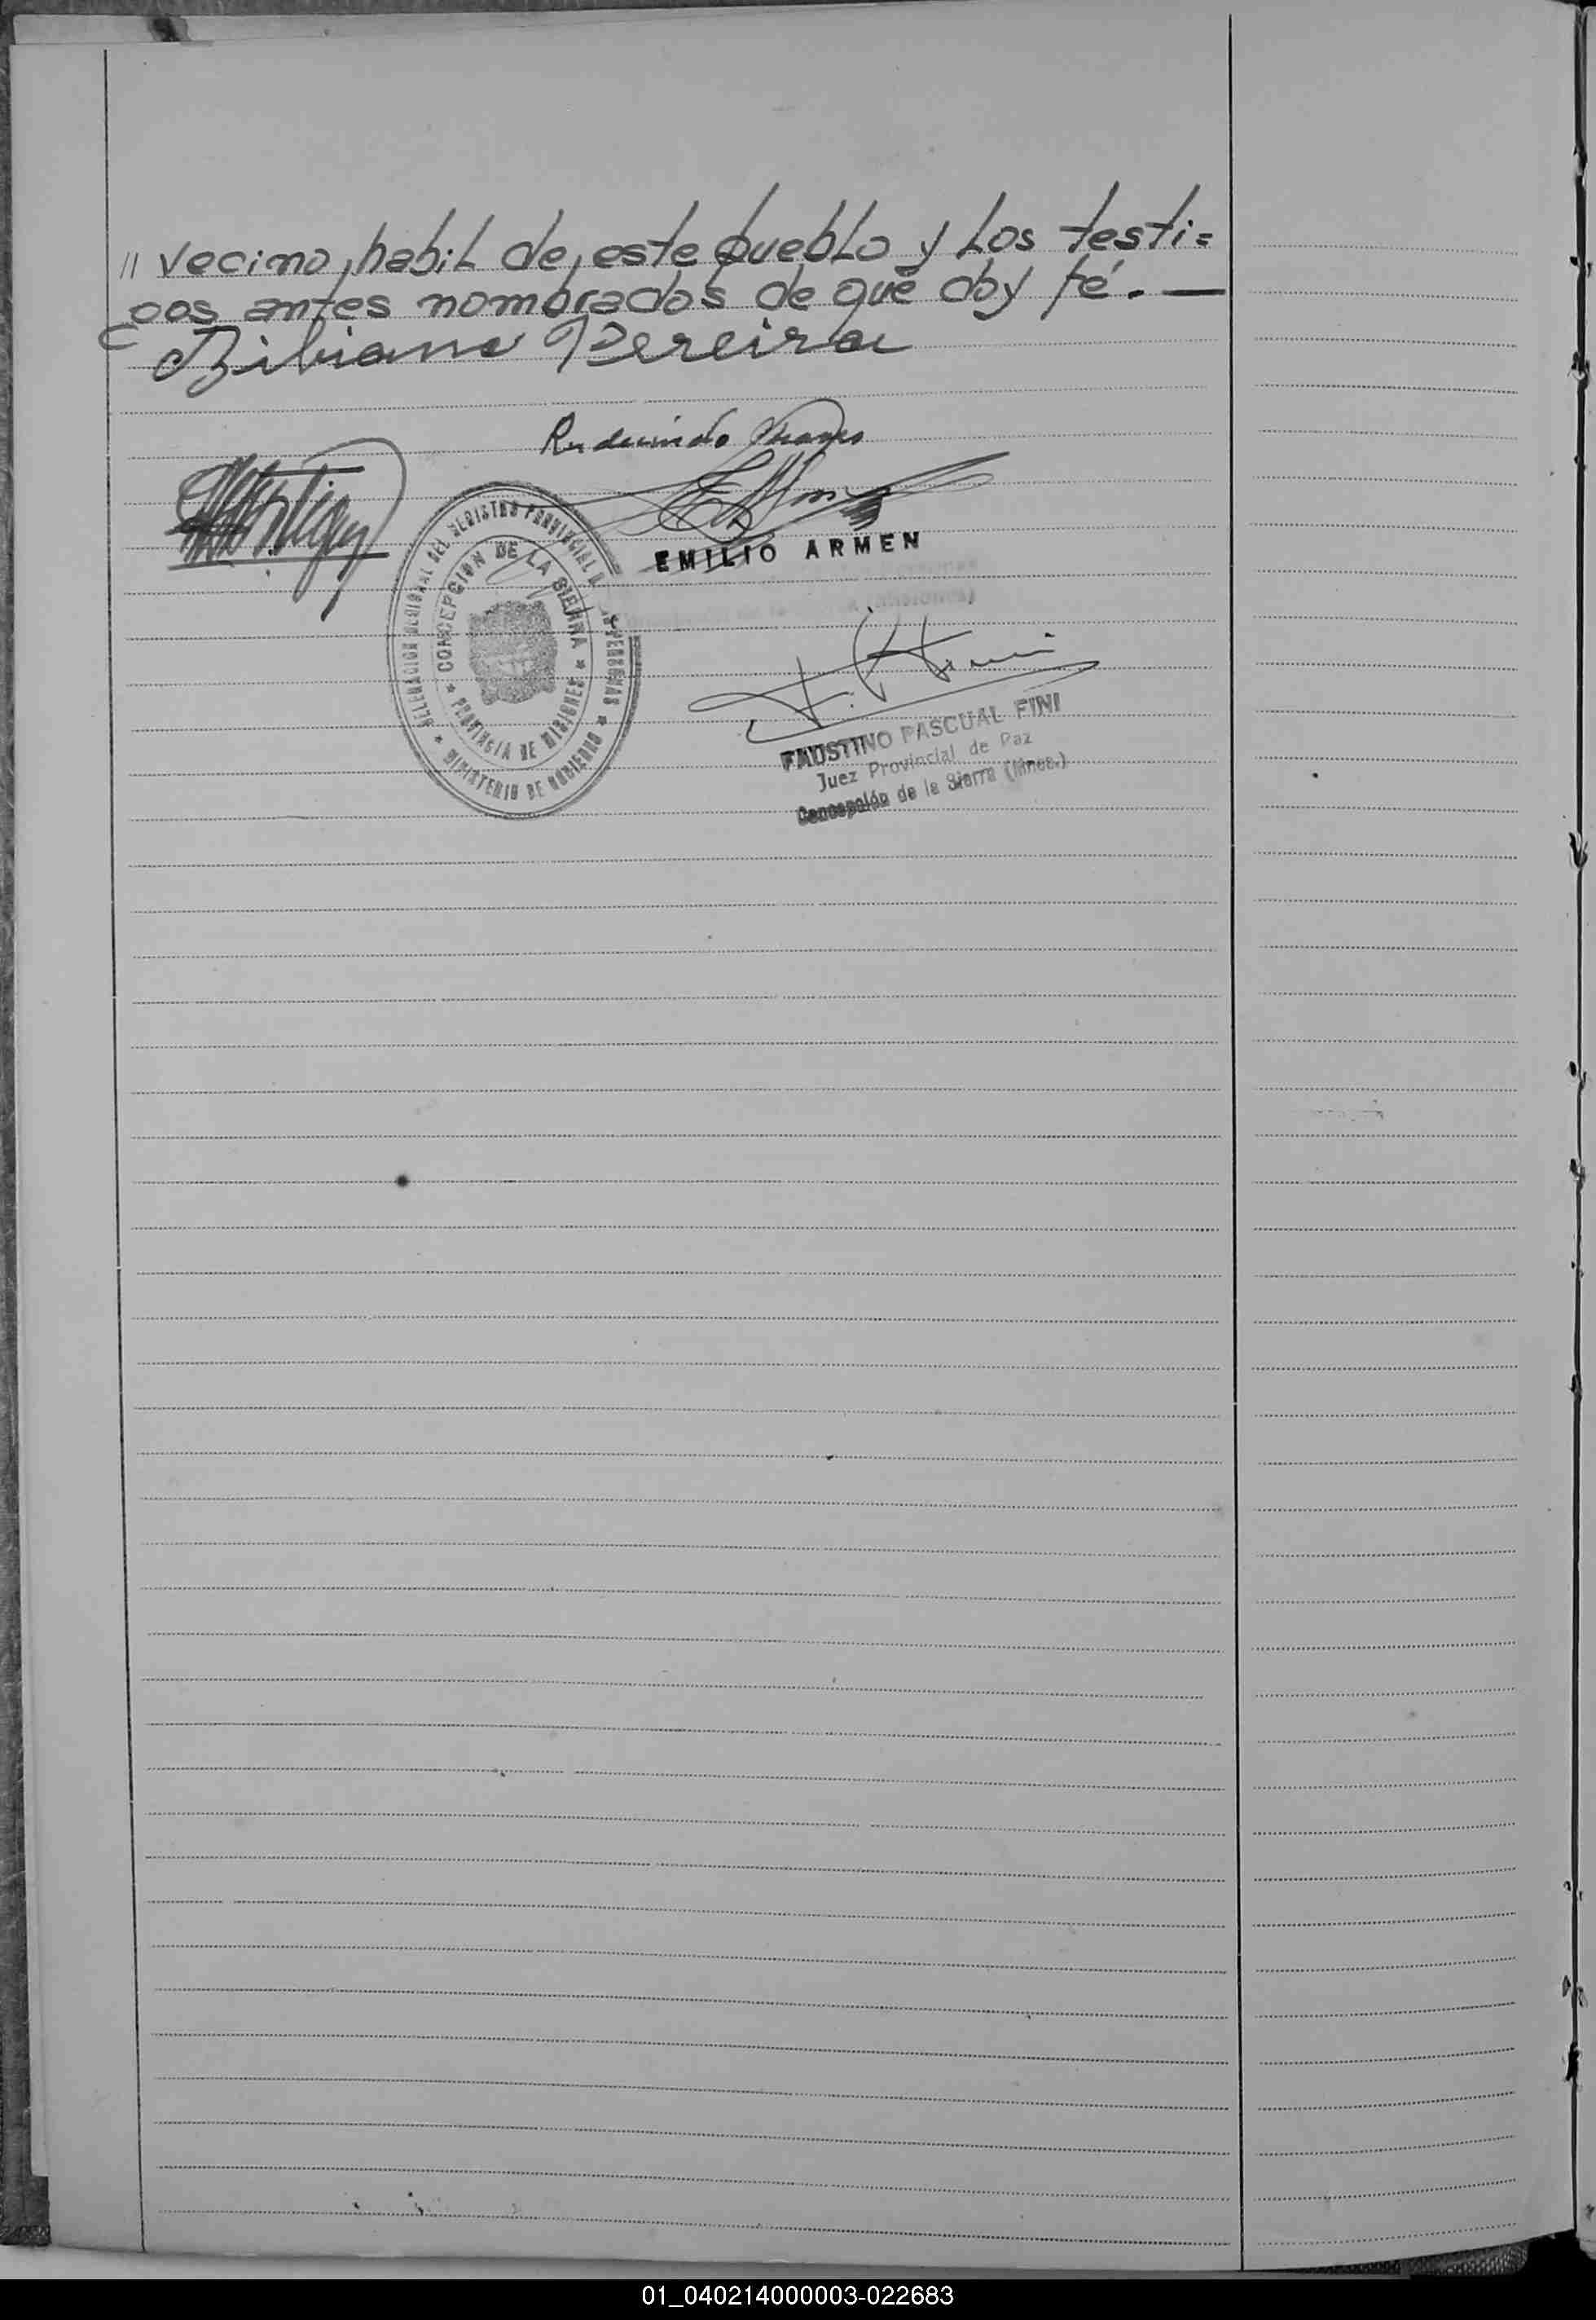 // vecino, habil de, este pueblo y Los testi=
gos antes nombrados de que doy fé. —
Bibiano Pereira
Rudecindo
EMILIO ARMEN
DELEGACION REGIONAL DEL REGISTRO PROVINCIAL DE LAS PERSONAS
★ MINISTERIO DE GOBIERNO ★
CONCEPCION DE LA SIERRA
★ PROVINCIA DE MISIONES ★
FAUSTINO PASCUAL FINI
Juez Provincial de Paz
Concepción de la Sierra (Mnes.)
01_040214000003-022683